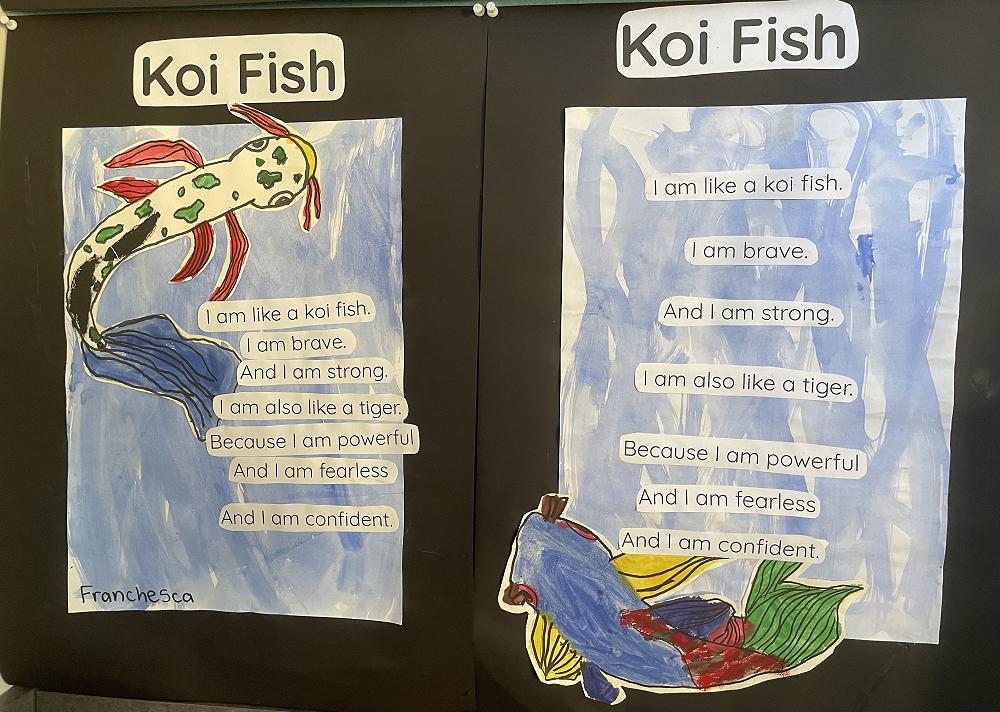 Koi Fish
I am like a koi fish.
I am brave.
And I am strong.
I am also like a tiger.
Because I am powerful
And I am fearless
And I am confident.
Franchesca
Koi Fish
I am like a koi fish.
I am brave.
And I am strong.
I am also like a tiger.
Because I am powerful
And I am fearless
And I am confident.